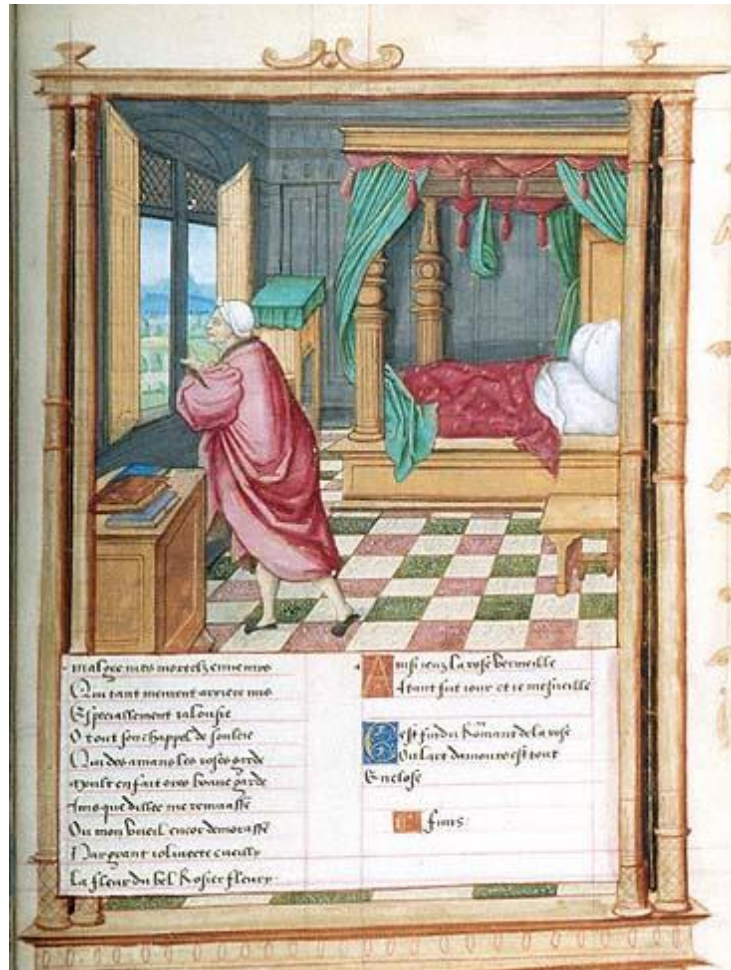 malgre mes mortelz ennemys
Qui tant meirent arriere mis
Especiallement ialousie
O tout son chappel de soulcie
Qui des amans les roses garde
Moult en fait ores bonne garde
Ains que dillec me remuasse
Ou mon vueil encor demorasse
Par grant iolivete cueilly
La fleur du bel Rosier fleury.
Ainsi ieuz la rose vermeille
Atant fut iour et ie mesveille
Cest fin du Romant de la rose
Ou lart damours est tout
Enclose
Finis